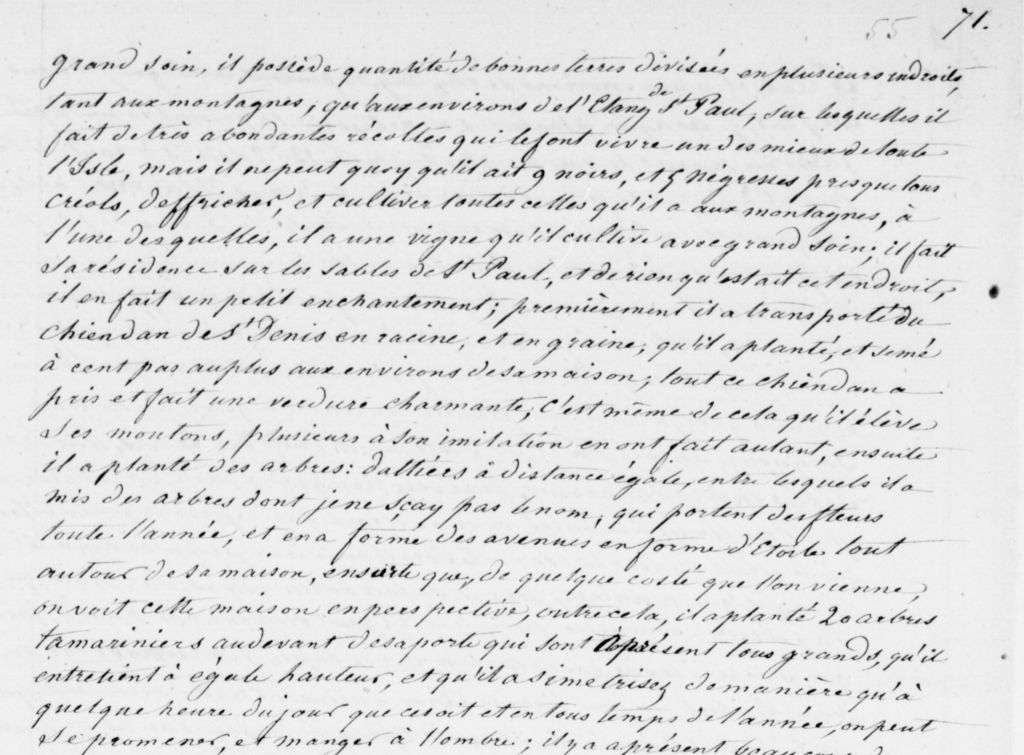 55 71.
grand soin, il possède quantité de bonnes terres divisées en plusieurs endroits,
tant aux montagnes, qu'aux environs de l'Etang de St Paul, sur lesquelles il
fait de très abondantes récoltes qui le font vivre un des mieux de toute
l'Isle, mais il ne peut quoy qu'il ait 9 noirs, et 5 négresses presque tous
Créols, deffricher, et cultiver toutes celles qu'il a aux montagnes, à
l'une desquelles, il a une vigne qu'il cultive avec grand soin; il fait
sa résidence sur les sables de St Paul, et de rien qu'estait cet endroit,
il en fait un petit enchantement; premièrement il a transporté du
chiendan de St Denis en racine, et en graine, qu'il a planté, et semé
à cent pas au plus aux environs de sa maison; tout ce chiendan a
pris et fait une verdure charmante, c'est même de cela qu'il élève
ses moutons, plusieurs à son imitation en ont fait autant, ensuite
il a planté des arbres: dattiers à distance égale, entre lesquels il a
mis des arbres dont je ne sçay pas le nom, qui portent des fleurs
toute l'année, et en a forme des avenues en forme d'Etoile tout
autour de sa maison, ensorte que, de quelque costé que l'on vienne,
on voit cette maison en perspective, outre cela, il a planté 20 arbres
tamariniers au devant de sa porte qui sont àprésent tous grands, qu'il
entretient à égale hauteur, et qu'il a simetrisez de manière qu'à
quelque heure du jour que ce soit et en tous temps de l'année, on peut
se promener, et manger à l'ombre; il y a aprésent beaucoup de